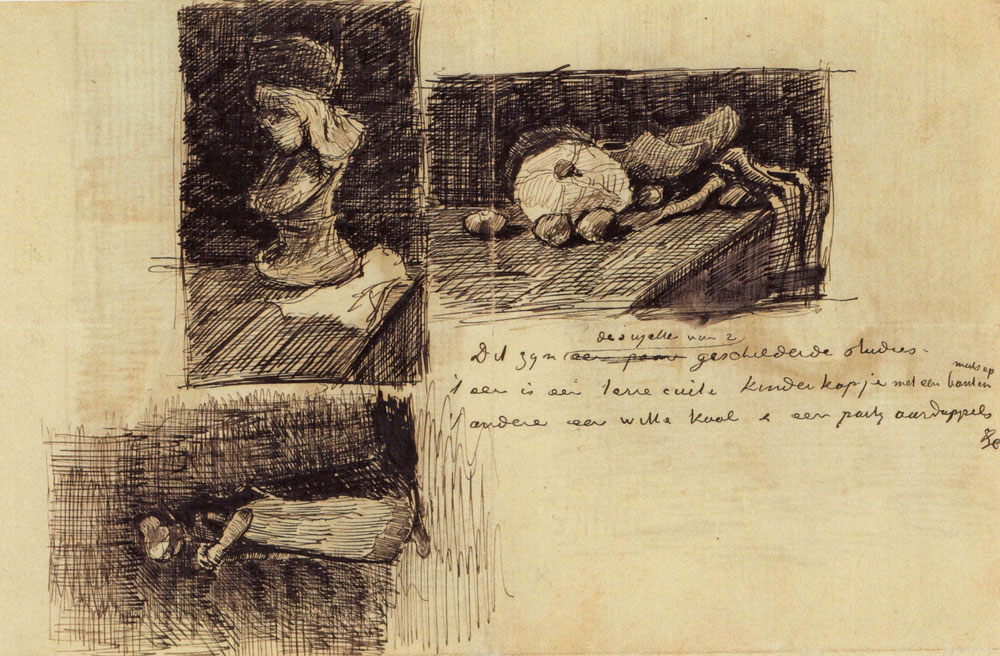 de schetse van 2
Dit zyn een paar geschilderde studies.
't een is een terre cuite kinderkopje met een bonten muts op
't andere een witte kool & een party aardappels